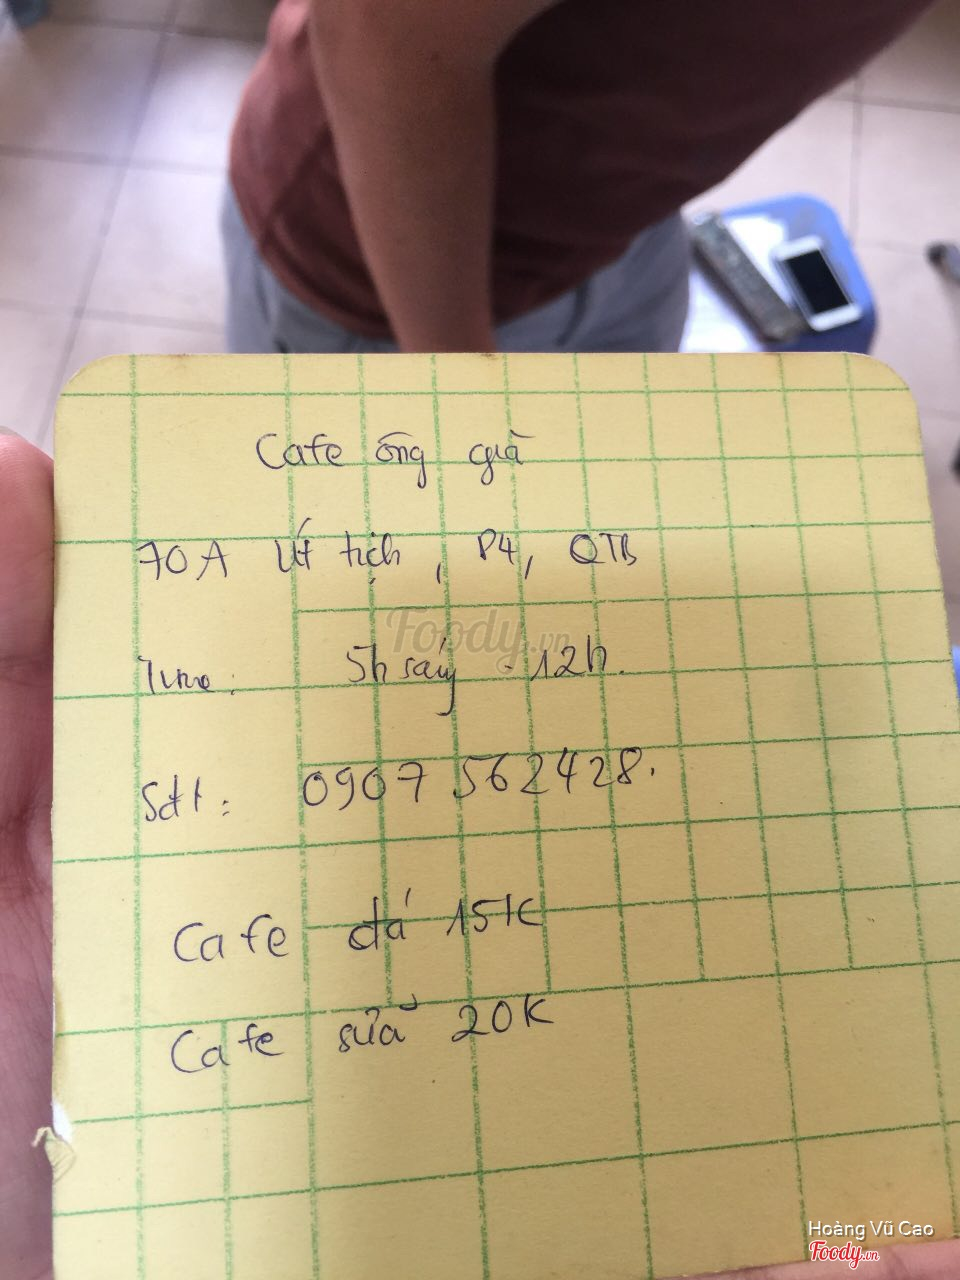 Cafe ông già
70A Út tịch, P4, QTB
Time: 5h sáng - 12h.
Sđt: 0907 562428.
Cafe đá 15K
Cafe sữa 20K
Foody.vn
Hoàng Vũ Cao
Foody.vn